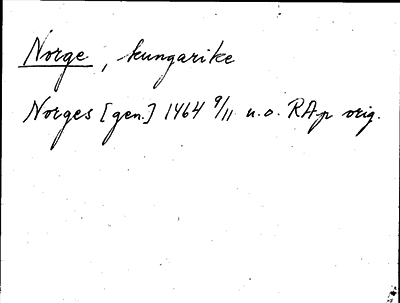 Norge, kungarike
Norges [gen.] 1464 9/11 u.o. RAp orig.